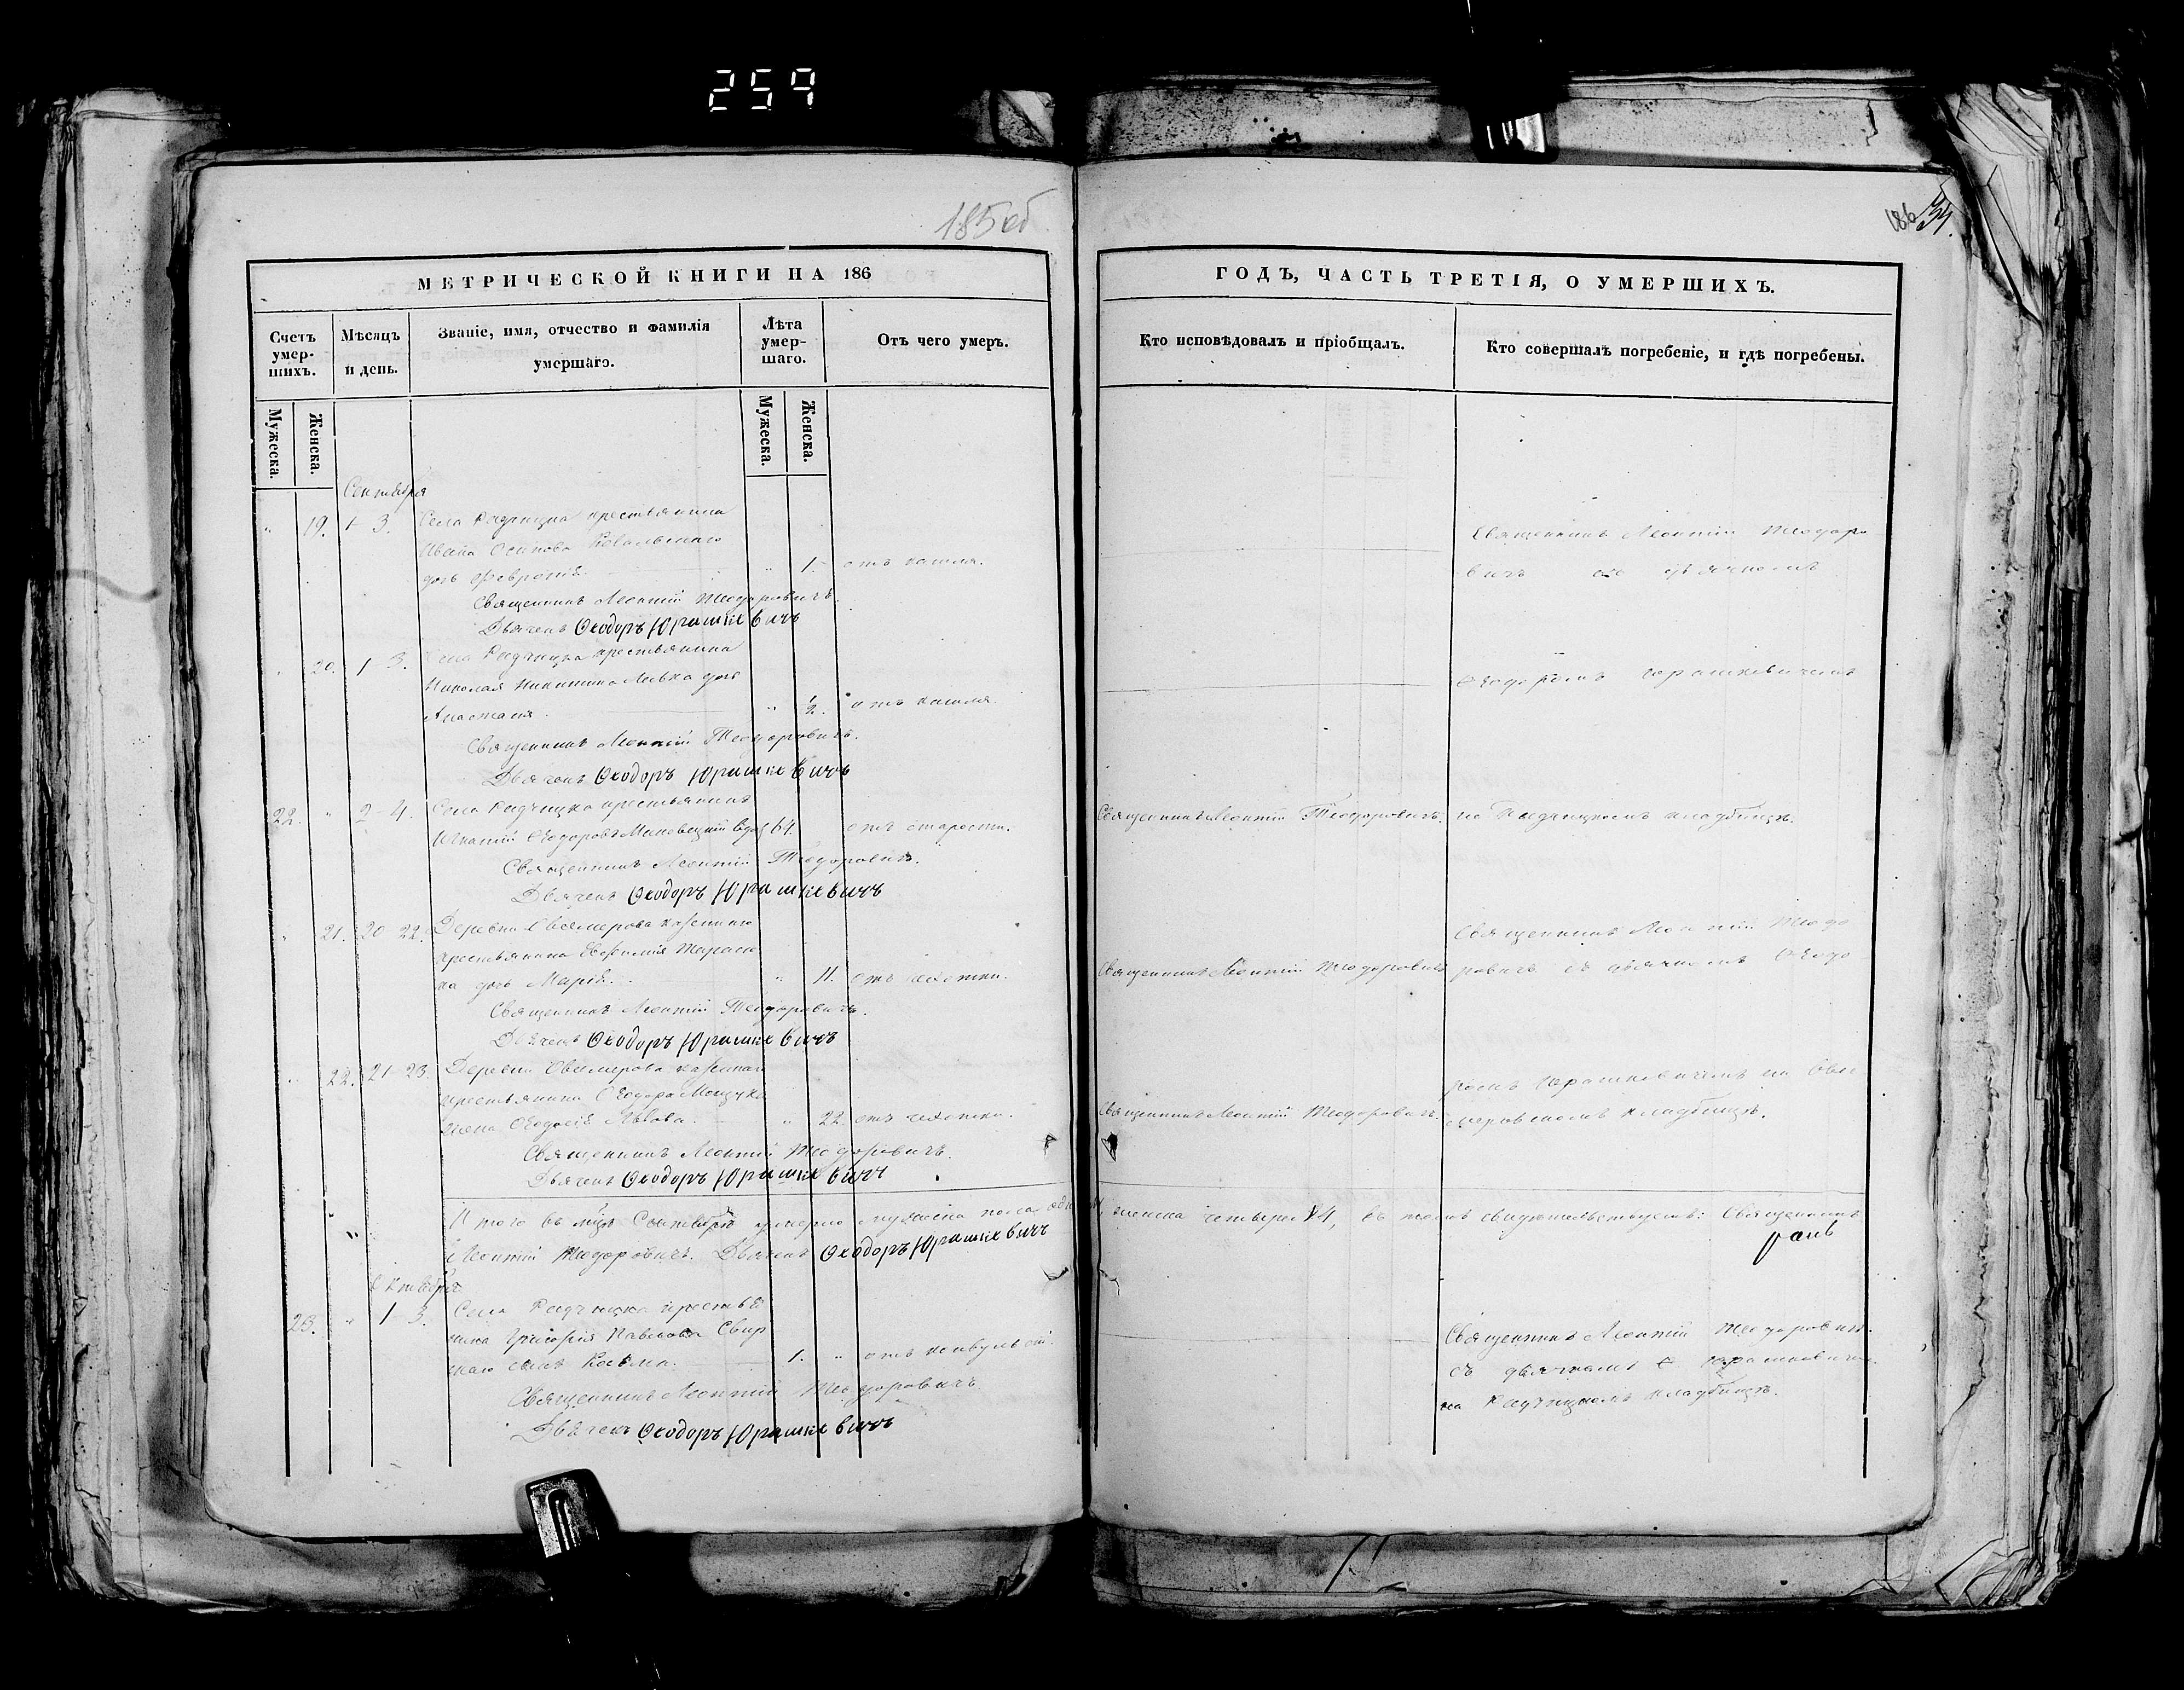 259
185 об
186 34.
МЕТРИЧЕСКОЙ КНИГИ НА 186
Счетъ умер-шихъ.
Мѣсяцъ и день.
Званіе, имя, отчество и фамилія умершаго.
Лѣта умер-шаго.
Отъ чего умеръ.
Мужеска.
Женска.
Мужеска.
Женска.
Сентября
" 19. 1 3. Села Радчицка крестьянина
Ивана Осипова Ковальскаго
дочь Февронія. " 1. отъ кашля.
Священникъ Леонтій Теодоровичъ.
Дьячекъ Ѳеодоръ Юрашкевичъ
" 20. 1 3. Села Радчицка крестьянина
Николая Никитина дочь
Анастасія. " ½. отъ кашля.
Священникъ Леонтій Теодоровичъ.
Дьячекъ Ѳеодоръ Юрашкевичъ
22. " 2 4. Села Радчицка крестьянинъ
Игнатій Ѳеодоровъ 64. отъ старости.
Священникъ Леонтій Теодоровичъ.
Дьячекъ Ѳеодоръ Юрашкевичъ
" 21. 20 22. Деревни казеннаго
крестьянина Тарасе
ка дочь Марія. " 11. отъ чахотки.
Священникъ Леонтій Теодоровичъ.
Дьячекъ Ѳеодоръ Юрашкевичъ
" 22. 21 23. Деревни казеннаго
крестьянина Ѳеодора
жена Ѳеодосія Львова. " 22. отъ чахотки.
Священникъ Леонтій Теодоровичъ.
Дьячекъ Ѳеодоръ Юрашкевичъ
Итого въ мцѣ Сентябрѣ умерло мужеска пола
Леонтій Теодоровичъ. Дьячекъ Ѳеодоръ Юрашкевичъ
Октября
23. " 1 3. Села Радчицка крестья
нина Григорія Павлова
сынъ Косьма. 1. " отъ конвульсій.
Священникъ Леонтій Теодоровичъ.
Дьячекъ Ѳеодоръ Юрашкевичъ
ГОДЪ, ЧАСТЬ ТРЕТІЯ, О УМЕРШИХЪ.
Кто исповѣдовалъ и пріобщалъ.
Кто совершалъ погребеніе, и гдѣ погребены.
Священникъ Леонтій Теодоро
вичъ со дьячкомъ
Ѳеодоромъ Юрашкевичемъ
Священникъ Леонтій Теодоровичъ. на Радчицкомъ кладбищѣ.
Священникъ Леонтій Теодо
Священникъ Леонтій Теодоровичъ ровичъ съ дьячкомъ Ѳеодо
ромъ Юрашкевичемъ на
Священникъ Леонтій Теодоровичъ. меровскомъ кладбищѣ.
женска четыре 4, въ томъ свидѣтельствуемъ: Священникъ
Священникъ Леонтій Теодоровичъ.
съ дьячкомъ Ѳ. Юрашкевичемъ
на Радчицкомъ кладбищѣ.